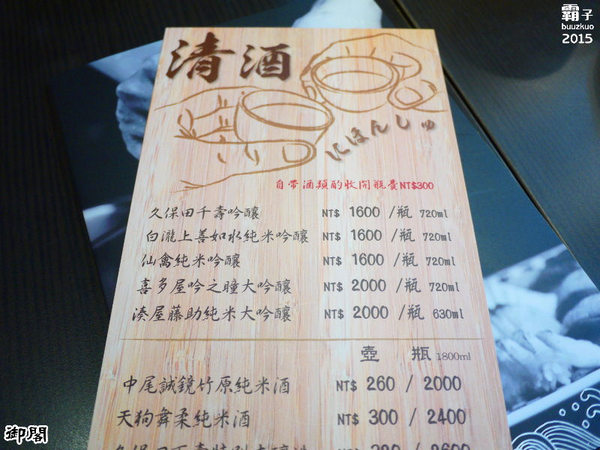 霸子
buuzkuo
2015
清酒
にほんしゅ
自帶酒類酌收開瓶費NT$300
久保田千壽吟釀 NT$ 1600 /瓶 720ml
白瀧上善如水純米吟釀 NT$ 1600 /瓶 720ml
仙禽純米吟釀 NT$ 1600 /瓶 720ml
喜多屋吟之瞳大吟釀 NT$ 2000 /瓶 720ml
湊屋藤助純米大吟釀 NT$ 2000 /瓶 630ml
壺 瓶 1800ml
中尾誠鏡竹原純米酒 NT$ 260 / 2000
天狗舞柔純米酒 NT$ 300 / 2400
御閣